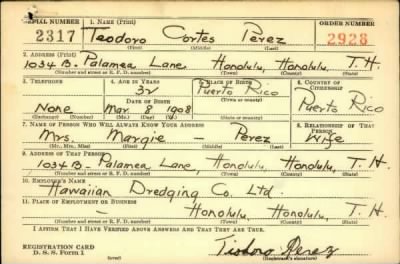 SERIAL NUMBER 1. NAME (Print) ORDER NUMBER
2317 Teodoro Cortes Perez 2928
(First) (Middle) (Last)
2. ADDRESS (Print)
1034 B. Palamea Lane, Honolulu, Honolulu, T. H.
(Number and street or R. F. D. number) (Town) (County) (State)
3. TELEPHONE 4. AGE IN YEARS 5. PLACE OF BIRTH 6. COUNTRY OF CITIZENSHIP
32 Puerto Rico
DATE OF BIRTH (Town or county) Puerto Rico
None Mar 8 1908
(Exchange) (Number) (Mo.) (Day) (Yr.) (State or country)
7. NAME OF PERSON WHO WILL ALWAYS KNOW YOUR ADDRESS 8. RELATIONSHIP OF THAT PERSON
Mrs. Margie - Perez Wife
(Mr., Mrs., Miss) (First) (Middle) (Last)
9. ADDRESS OF THAT PERSON
1034 B- Palamea Lane, Honolulu, Honolulu, T. H.
(Number and street or R. F. D. number) (Town) (County) (State)
10. EMPLOYER'S NAME
Hawaiian Dredging Co. Ltd.
11. PLACE OF EMPLOYMENT OR BUSINESS
- Honolulu, Honolulu, T. H.
(Number and street or R. F. D. number) (Town) (County) (State)
I AFFIRM THAT I HAVE VERIFIED ABOVE ANSWERS AND THAT THEY ARE TRUE.
REGISTRATION CARD
D. S. S. Form 1 Tiodoro Perez
(over) (Registrant's signature)